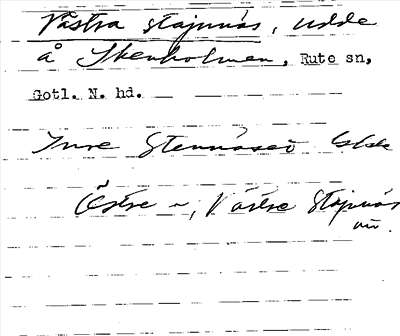 Västra Stajnnäs, udde
å Skenholmen, Rute sn,
Gotl. N. hd.
Inre Stennäset
Östre o, Västre Stajnnäs